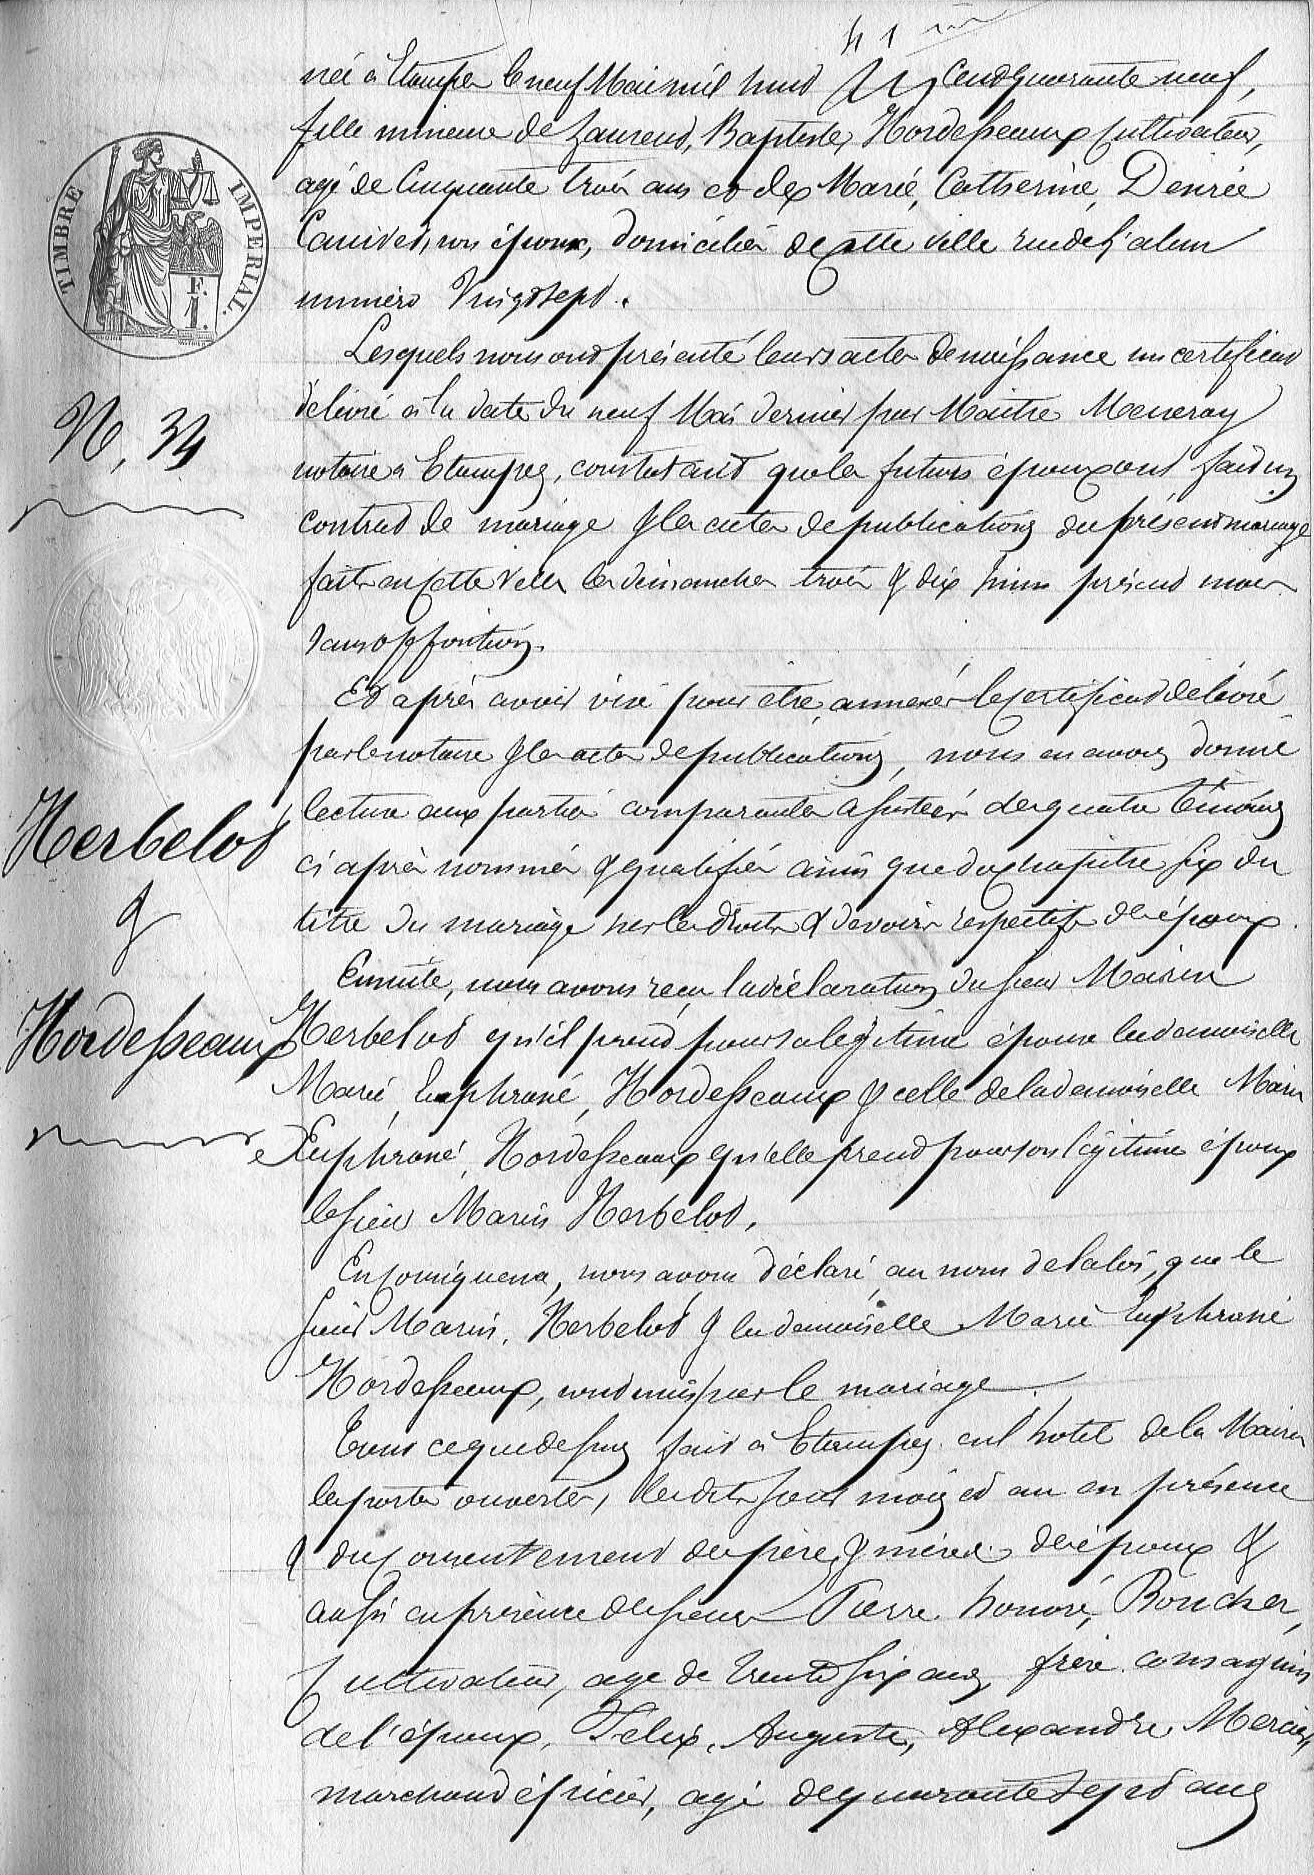 41
née à Etampes le neuf Mai mil huit cent quarante neuf,
fille mineure de Laurent, Baptiste, Hordesseaux Cultivateur,
agé de Cinquante trois ans et de Marie, Catherine, Désirée
Canivet, son épouse, domiciliés de cette ville rue de
numéro Vingt sept.
TIMBRE IMPERIAL.
F. 1.
Lesquels nous ont présenté leurs actes de naissance un certificat
délivré à la date du neuf Mai dernier par Maître
notaire à Etampes, constatant que les futurs époux ont fait un
contrat de mariage & les actes de publications du présent mariage
faites en cette ville les dimanches trois & dix Juin présent mois
sans opposition.
N, 34
Et après avoir visé pour être annexés le certificat délivré
par le notaire & les actes de publications, nous en avons donné
lecture aux parties comparantes assistées des quatre témoins
ci après nommés & qualifiés ainsi que du chapitre six du
titre du mariage sur les droits & devoirs respectifs des époux.
Herbelot
&
Hordesseaux
Ensuite, nous avons reçu la déclaration du sieur Marin
Herbelot qu'il prend pour sa légitime épouse la demoiselle
Marie, Euphrasie, Hordesseaux & celle de la demoiselle Marie
Euphrasie, Hordesseaux qu'elle prend pour son légitime époux
le sieur Marin Herbelot.
En conséquence, nous avons déclaré, au nom de la loi, que le
sieur Marin, Herbelot & la demoiselle Marie Euphrasie
Hordesseaux, sont unis par le mariage.
Tout ce que dessus fait à Etampes en l'hotel de la Mairie
les portes ouvertes, les dits jour mois et an en présence
& du consentement des pères & mères des époux &
aussi en présence des sieurs Pierre honoré, Boucher,
Cultivateur, agé de trente six ans, frère consanguin
de l'époux, Félix, Auguste, Alexandre,
marchand épicier, agé de quarante sept ans